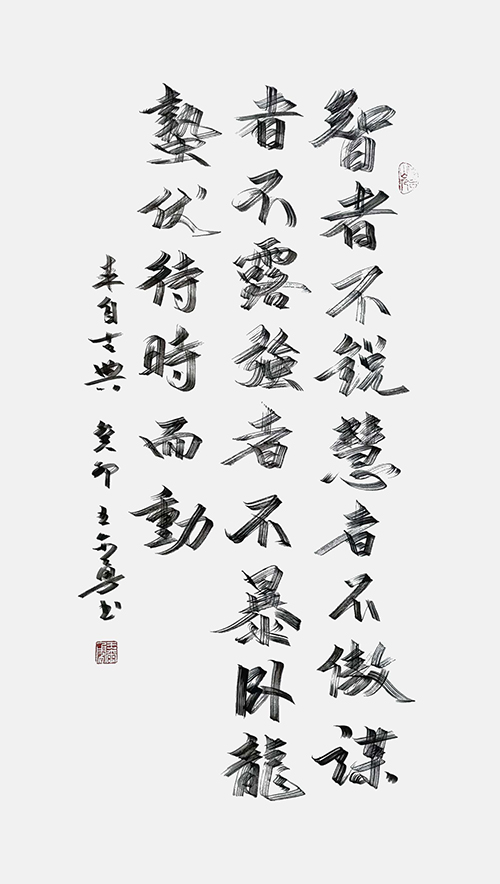 智者不銳慧者不傲謀
者不露強者不暴卧龍
蟄伏待時而動
丰自古典 癸卯 王不勇书